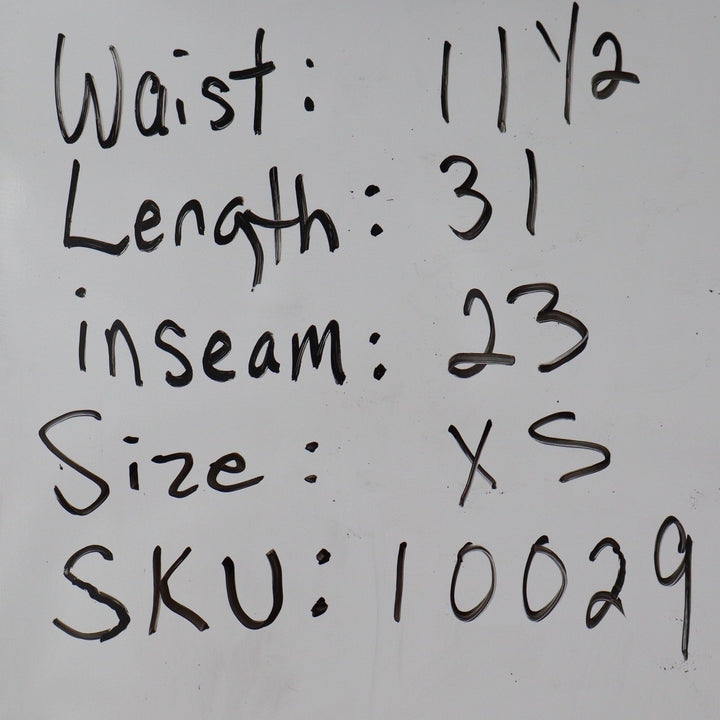 Waist: 11 1/2
Length: 31
inseam: 23
Size: XS
SKU: 10029